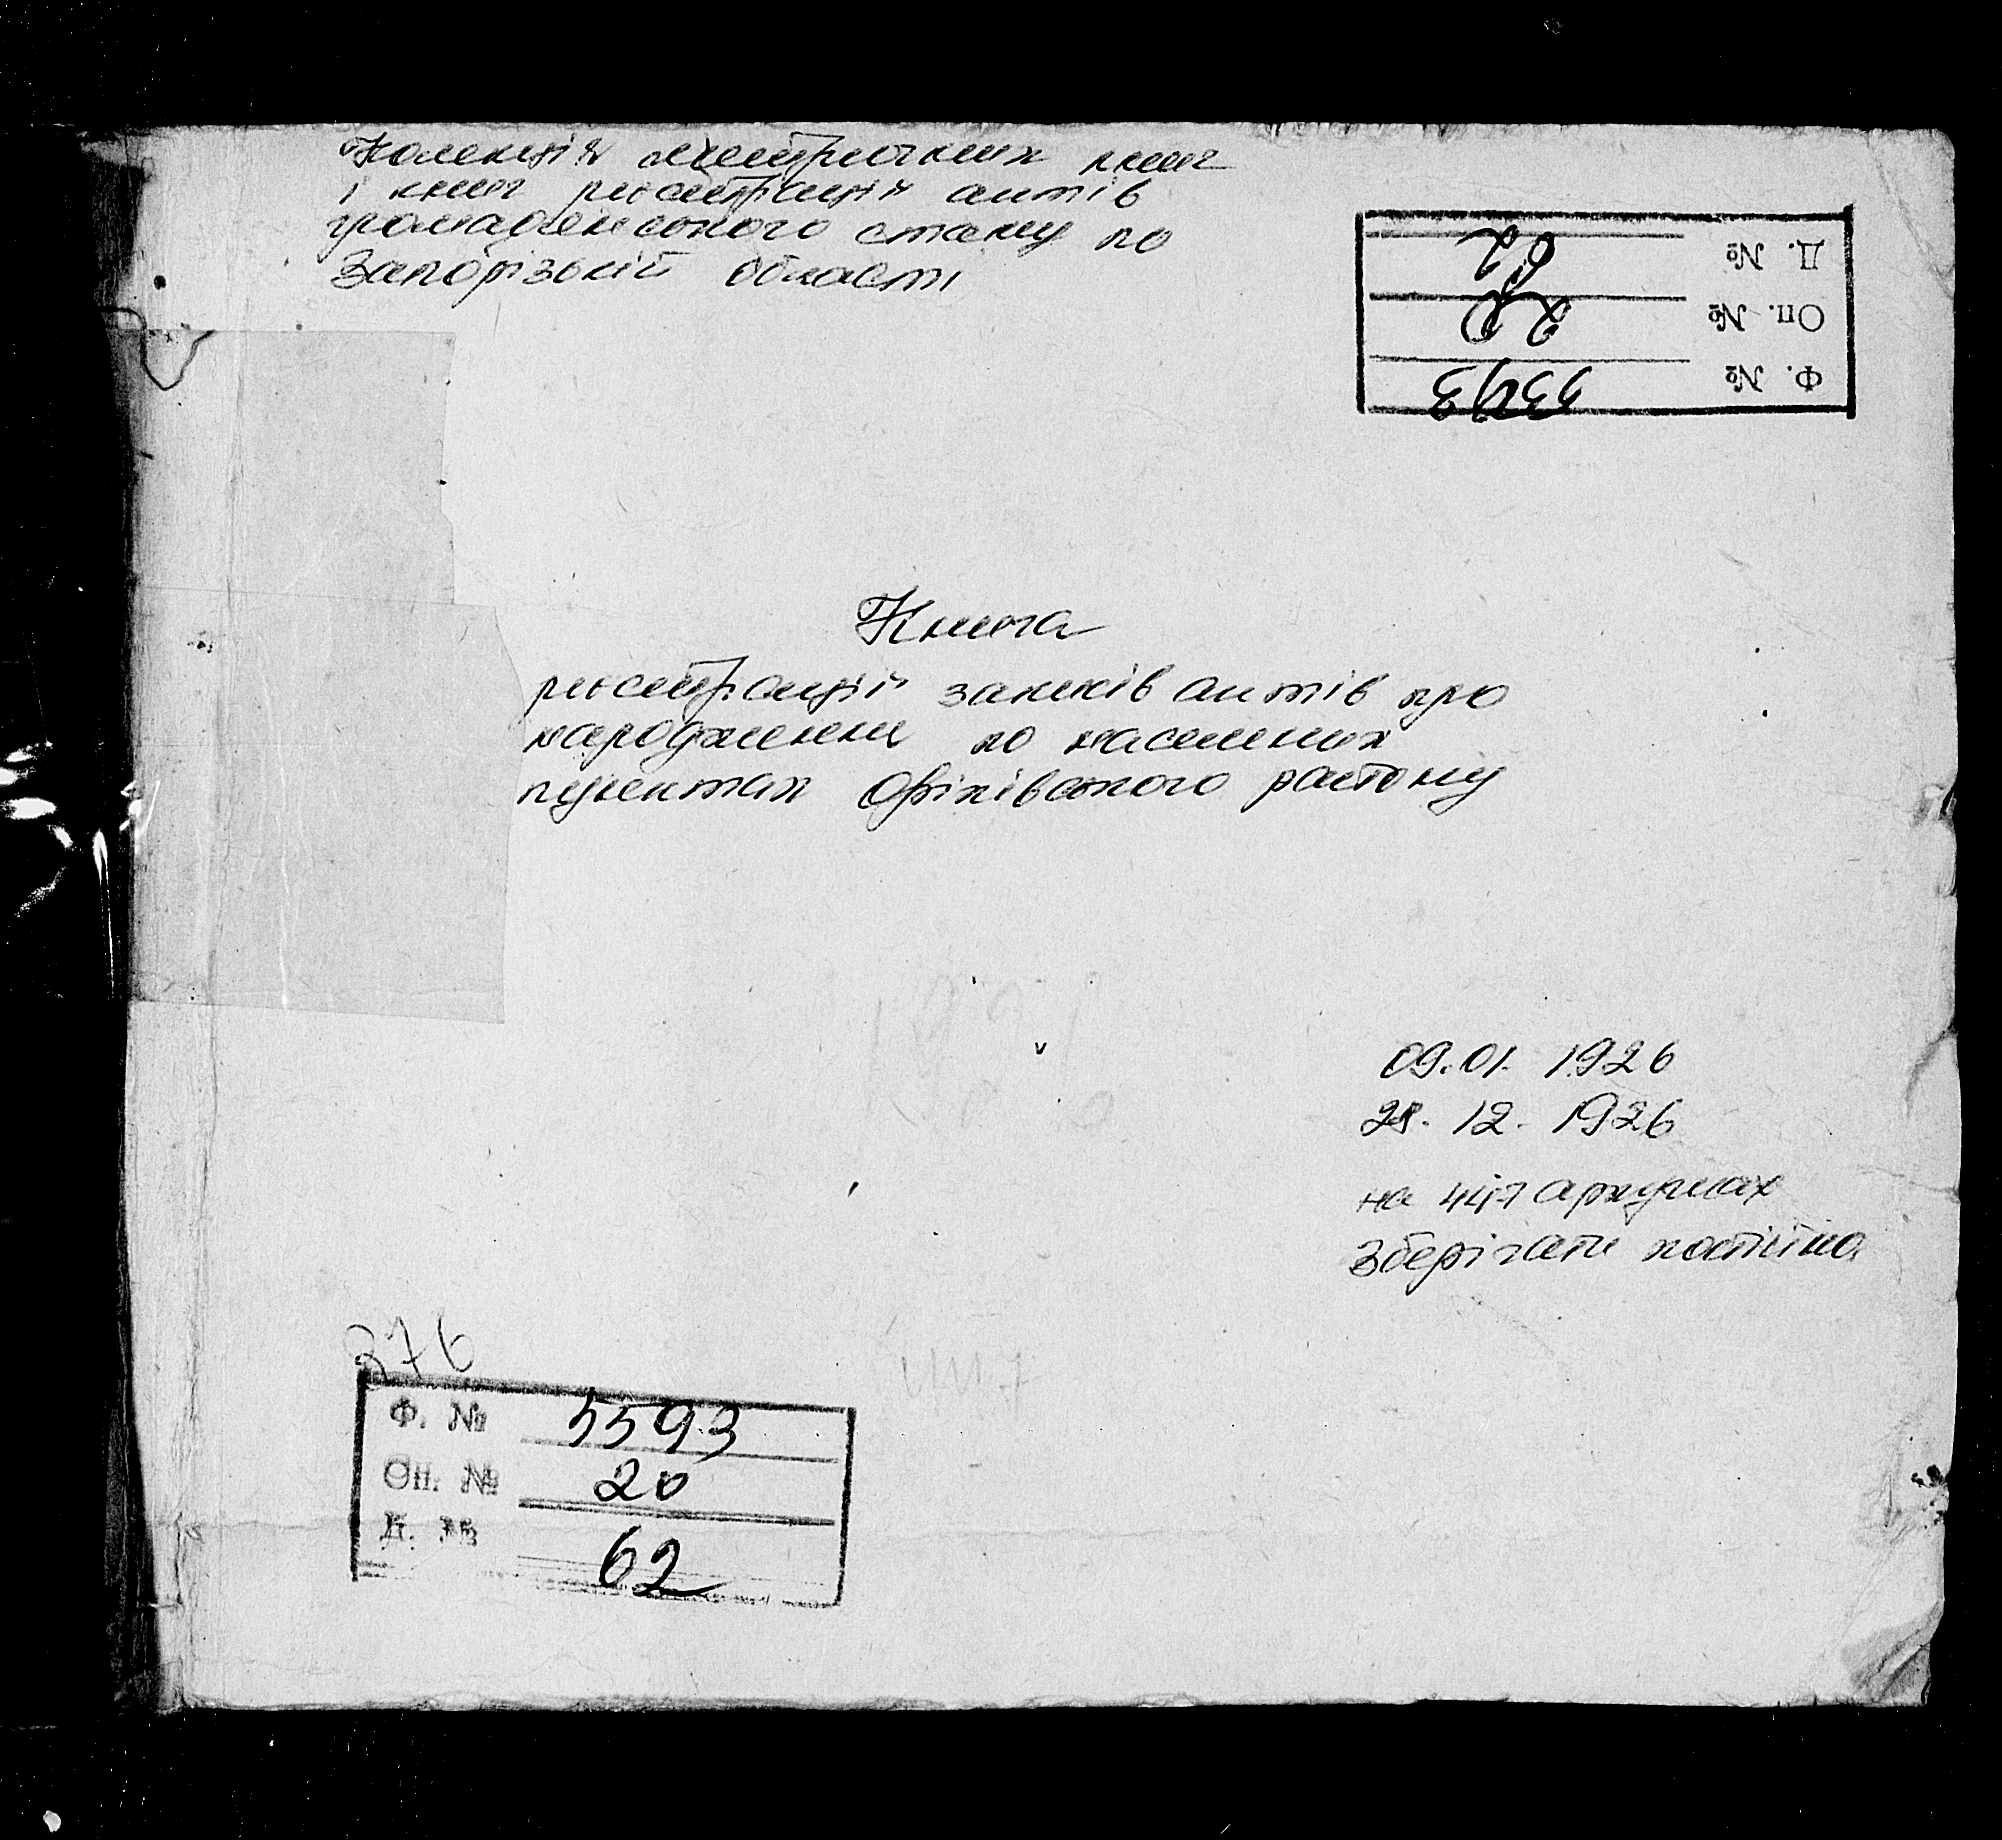 Колекція метричних книг
і книг реєстрації актів
громадянського стану по
Запорізькій області
Д. № 62
Оп. № 20
Ф. № 5593
Книга
реєстрації записів актів про
народження по населених
пунктах Оріхівського району
09.01. 1926
28. 12. 1926
на 447 аркушах
Зберігати постійно
376
Ф. № 5593
Оп. № 20
Д. № 62